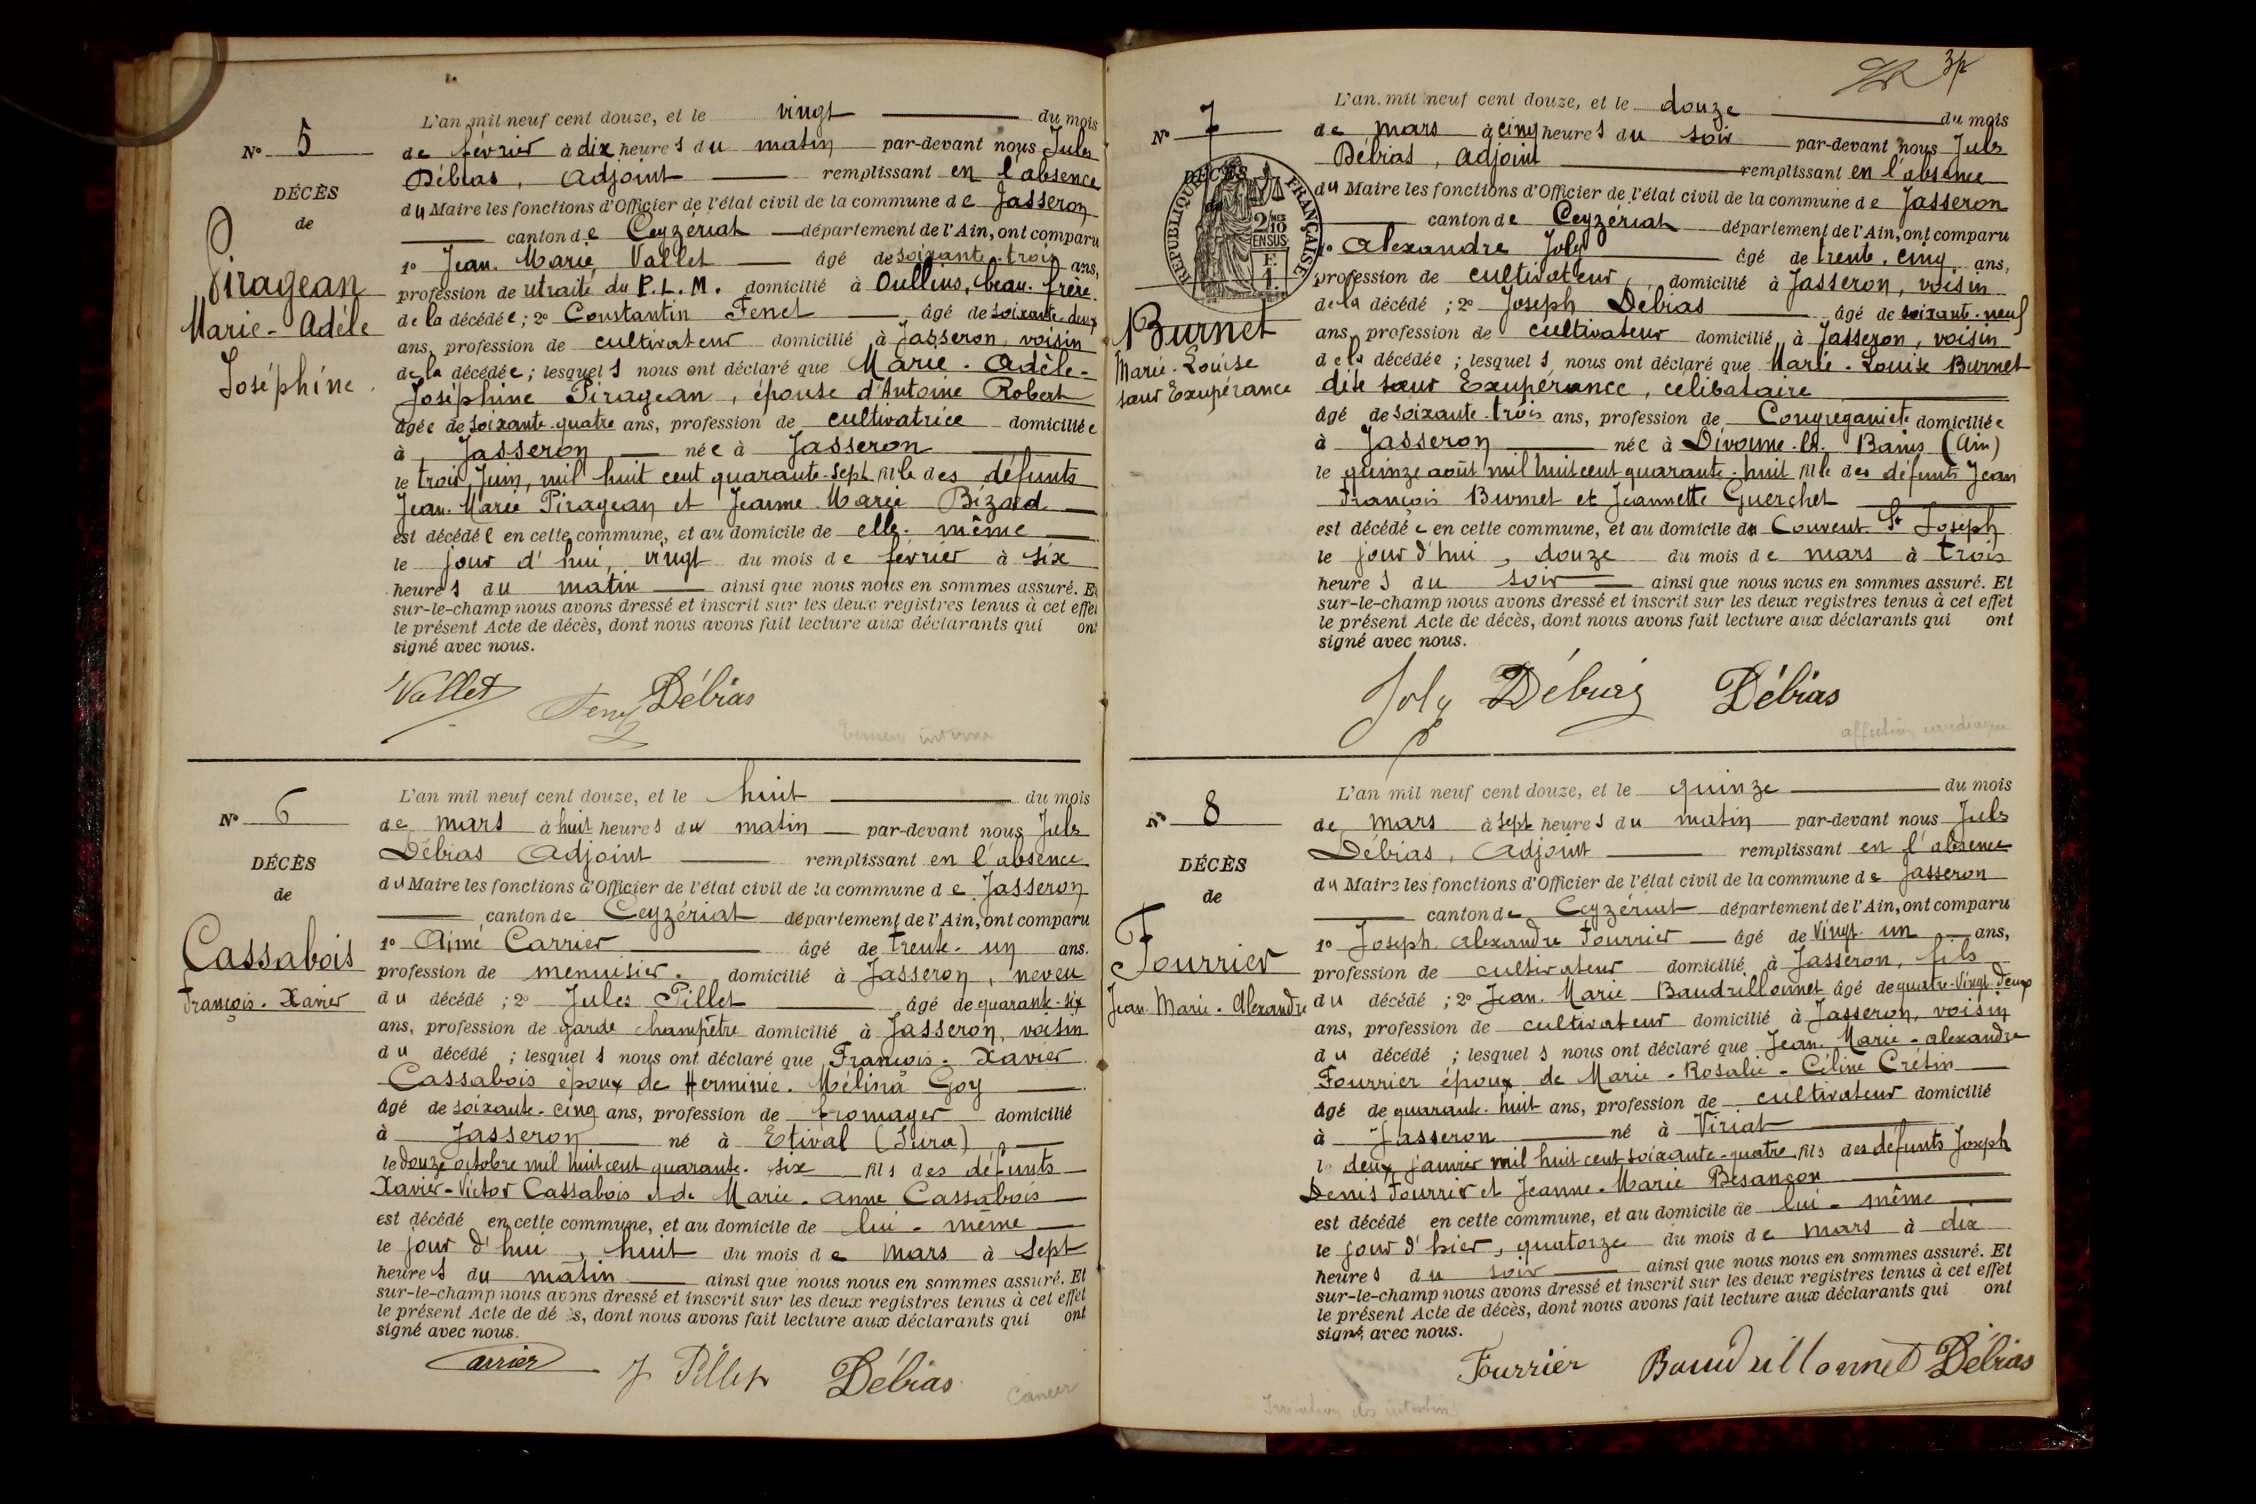 N° 5
DÉCÈS
de
Piragean
Marie-Adèle
Joséphine
L'an mil neuf cent douze, et le vingt du mois
de février à dix heures du matin par-devant nous Jules
Débias, Adjoint remplissant en l'absence
du Maire les fonctions d'Officier de l'état civil de la commune de Jasseron
canton de Ceyzériat département de l'Ain, ont comparu
1° Jean-Marie Vallet âgé de soixante-trois ans,
profession de retraité du P.L.M. domicilié à Oullins, beau-frère
de la décédée; 2° Constantin Fenet âgé de soixante-deux
ans, profession de cultivateur domicilié à Jasseron, voisin
de la décédée; lesquels nous ont déclaré que Marie-Adèle-
Joséphine Piragean, épouse d'Antoine Robert
âgée de soixante-quatre ans, profession de cultivatrice domiciliée
à Jasseron née à Jasseron
le trois Juin, mil huit cent quarante-sept fille des défunts
Jean-Marie Piragean et Jeanne-Marie Bizard
est décédée en cette commune, et au domicile de elle-même
le jour d'hui, vingt du mois de février à six
heures du matin ainsi que nous nous en sommes assuré. Et
sur-le-champ nous avons dressé et inscrit sur les deux registres tenus à cet effet
le présent Acte de décès, dont nous avons fait lecture aux déclarants qui ont
signé avec nous.
Vallet Débias
N° 6
DÉCÈS
de
Cassabois
François-Xavier
L'an mil neuf cent douze, et le huit du mois
de mars à huit heures du matin par-devant nous Jules
Débias Adjoint remplissant en l'absence
du Maire les fonctions d'Officier de l'état civil de la commune de Jasseron
canton de Ceyzériat département de l'Ain, ont comparu
1° Aimé Carrier âgé de trente-un ans.
profession de menuisier. domicilié à Jasseron, neveu
du décédé; 2° Jules Pillet âgé de quarante-six
ans, profession de garde champêtre domicilié à Jasseron, voisin
du décédé; lesquels nous ont déclaré que François-Xavier
Cassabois époux de Herminie-Mélina Goy
âgé de soixante-cinq ans, profession de fromager domicilié
à Jasseron né à Etival (Jura)
le douze octobre mil huit cent quarante-six fils des défunts
Xavier-Victor Cassabois et de Marie-Anne Cassabois
est décédé en cette commune, et au domicile de lui-même
le jour d'hui, huit du mois de mars à sept
heures du matin ainsi que nous nous en sommes assuré. Et
sur-le-champ nous avons dressé et inscrit sur les deux registres tenus à cet effet
le présent Acte de dé s, dont nous avons fait lecture aux déclarants qui ont
signé avec nous.
Carrier J Pillet Débias
Cancer
N° 7
DÉCÈS
de
RÉPUBLIQUE FRANÇAISE
2/10
EN SUS
Burnet
Marie-Louise
sœur Exupérance
L'an mil neuf cent douze, et le douze du mois
de mars à cinq heures du soir par-devant nous Jules
Débias, Adjoint remplissant en l'absence
du Maire les fonctions d'Officier de l'état civil de la commune de Jasseron
canton de Ceyzériat département de l'Ain, ont comparu
1° Alexandre Joly âgé de trente-cinq ans,
profession de cultivateur, domicilié à Jasseron, voisin
de la décédé; 2° Joseph Débias âgé de soixante-neuf
ans, profession de cultivateur domicilié à Jasseron, voisin
de la décédée; lesquels nous ont déclaré que Marie-Louise Burnet
dite sœur Exupérance, célibataire
âgé de soixante-trois ans, profession de Congréganiste domiciliée
à Jasseron née à Divonne-les-Bains (Ain)
le quinze août mil huit cent quarante-huit fille des défunts Jean
François Burnet et Jeannette Guerchet
est décédée en cette commune, et au domicile du Couvent St Joseph
le jour d'hui, douze du mois de mars à trois
heures du soir ainsi que nous nous en sommes assuré. Et
sur-le-champ nous avons dressé et inscrit sur les deux registres tenus à cet effet
le présent Acte de décès, dont nous avons fait lecture aux déclarants qui ont
signé avec nous.
Joly Débias Débias
N° 8
DÉCÈS
de
Fourrier
Jean-Marie-Alexandre
L'an mil neuf cent douze, et le quinze du mois
de mars à sept heures du matin par-devant nous Jules
Débias, Adjoint remplissant en l'absence
du Maire les fonctions d'Officier de l'état civil de la commune de Jasseron
canton de Ceyzériat département de l'Ain, ont comparu
1° Joseph Alexandre Fourrier âgé de vingt-un ans,
profession de cultivateur domicilié à Jasseron, fils
du décédé; 2° Jean-Marie Baudrillonnet âgé de quatre-vingt-deux
ans, profession de cultivateur domicilié à Jasseron, voisin
du décédé; lesquels nous ont déclaré que Jean-Marie-Alexandre
Fourrier époux de Marie-Rosalie-Céline Crétin
âgé de quarante-huit ans, profession de cultivateur domicilié
à Jasseron né à Viriat
le deux janvier mil huit cent soixante-quatre fils des défunts Joseph
Denis Fourrier et Jeanne-Marie Besançon
est décédé en cette commune, et au domicile de lui-même
le jour d'hier, quatorze du mois de mars à dix
heures du soir ainsi que nous nous en sommes assuré. Et
sur-le-champ nous avons dressé et inscrit sur les deux registres tenus à cet effet
le présent Acte de décès, dont nous avons fait lecture aux déclarants qui ont
signé avec nous.
Fourrier Baudrillonnet Débias